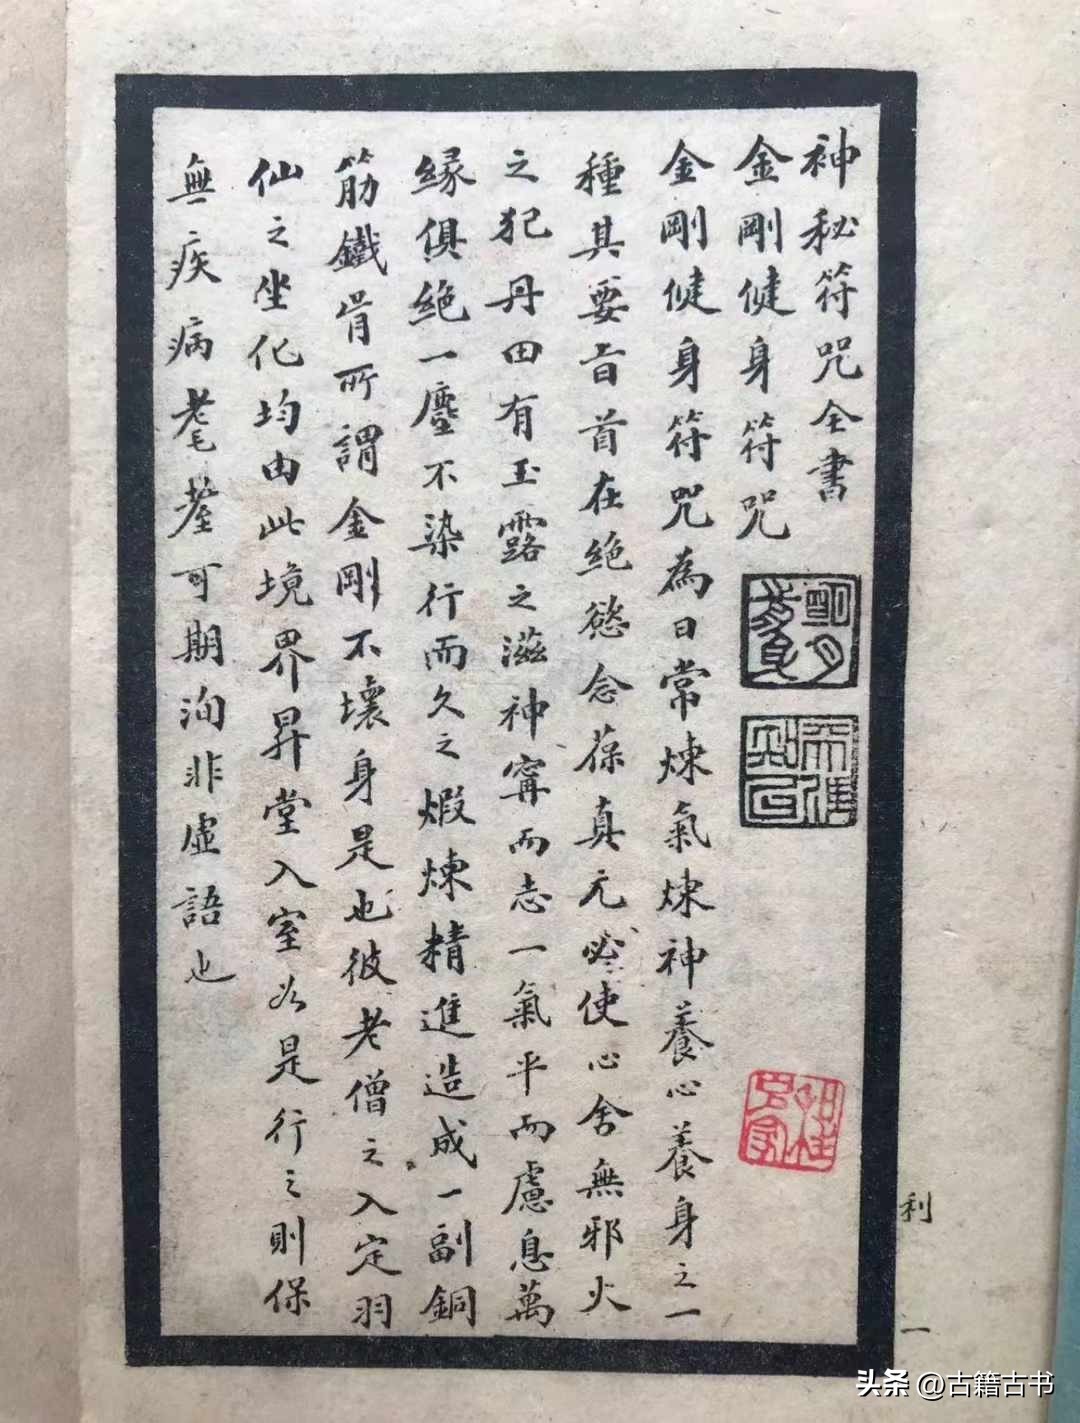 神秘符咒全書
金剛健身符咒
金剛健身符咒為日常煉氣煉神養心養身之一
種其要旨首在絕慾念葆真元必使心舍無邪火
之犯丹田有玉露之滋神寧而志一氣平而慮息萬
緣俱絕一塵不染行而久之煆煉精進造成一副銅
筋鐵骨所謂金剛不壞身是也彼老僧之入定羽
仙之坐化均由此境界昇堂入室如是行之則保
無疾病耄耋可期洵非虛語也
利
一
头条 @古籍古书